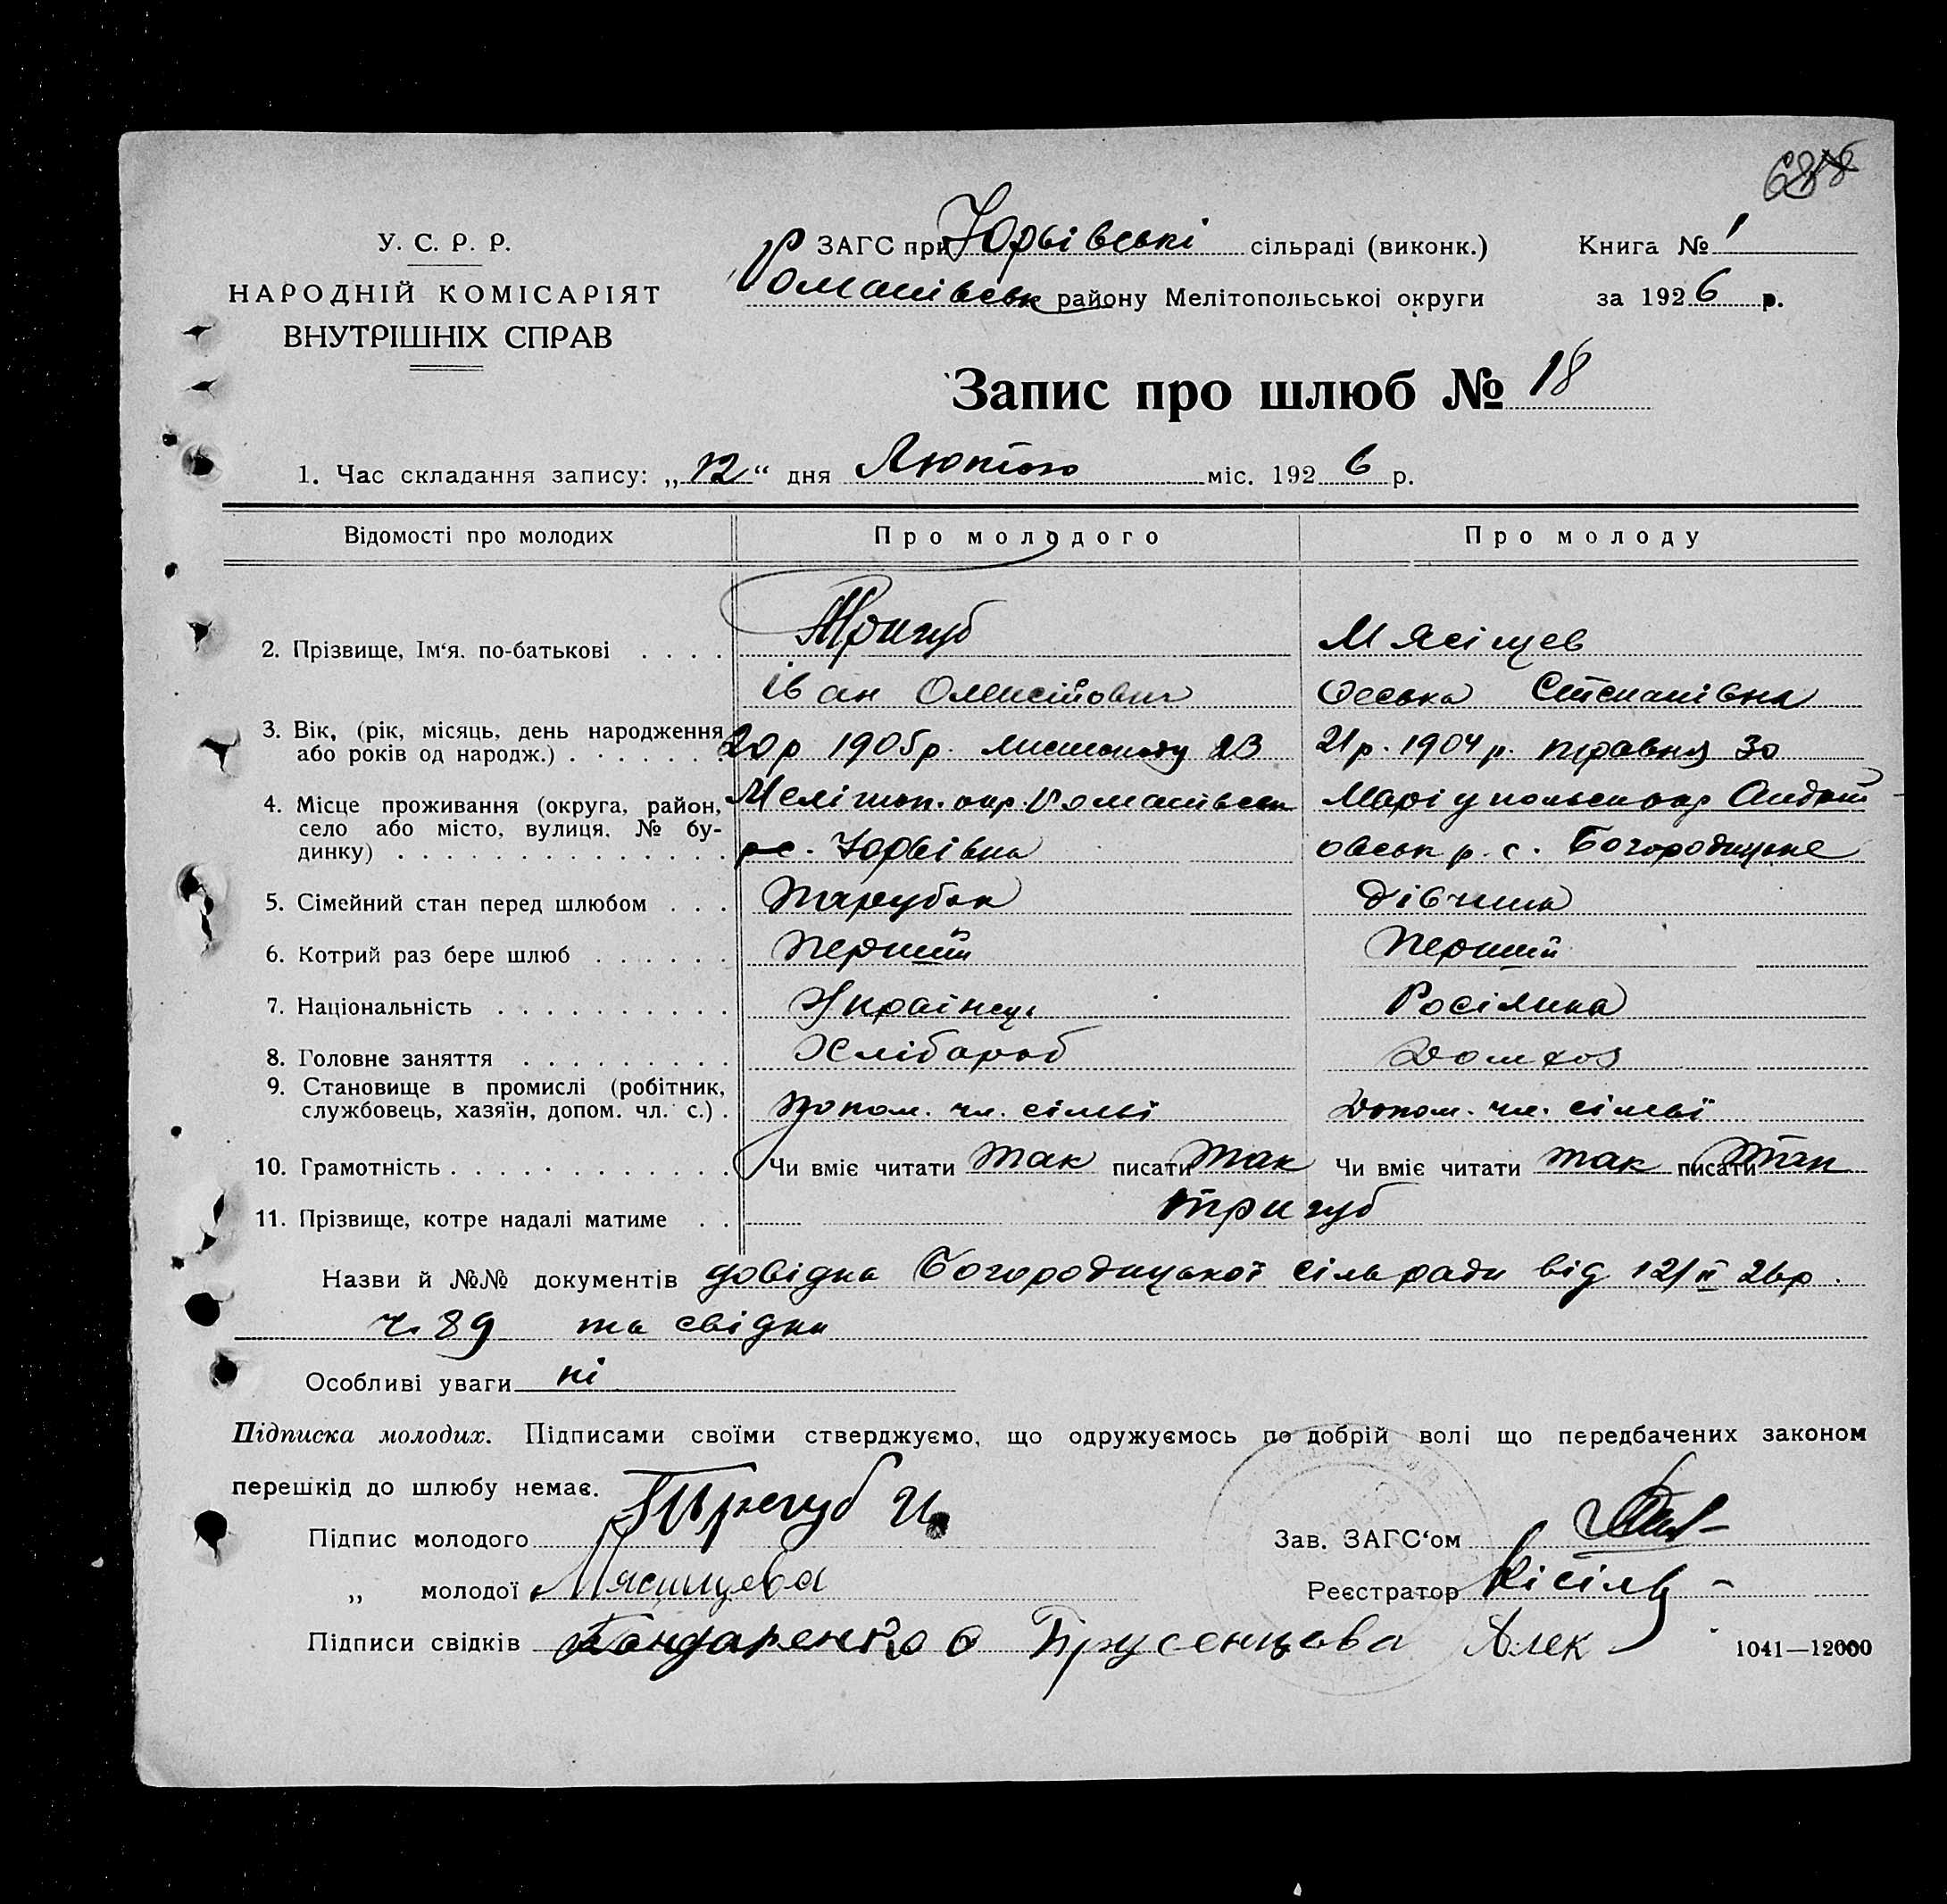 У. С. Р. Р.
НАРОДНІЙ КОМІСАРІЯТ
ВНУТРІШНІХ СПРАВ
ЗАГС при Юрьівські сільраді (виконк.) Книга № 1
Романівськ району Мелітопольської округи за 1926 р.
Запис про шлюб № 18
1. Час складання запису: „12“ дня Лютого міс. 1926 р.
Відомості про молодих Про молодого Про молоду
2. Прізвище, Ім'я, по-батькові . . . . Тригуб Мясіщев
Іван Степанівна
3. Вік, (рік, місяць, день народження або років од народж.) 20 р 1905 р. листопаду 23 21 р. 1904 р. травня 30
4. Місце проживання (округа, район, село або місто, вулиця, № будинку) Меліт оп. окр. Романівськ Маріупольськ окр
р с. Юрьівка овськ р. с. Богородицьке
5. Сімейний стан перед шлюбом . . . Парубок Дівчина
6. Котрий раз бере шлюб . . . . . . Перший Перший
7. Національність . . . . . . . . . . Українець Росіянка
8. Головне заняття . . . . . . . . . Хлібороб Домхоз
9. Становище в промислі (робітник, службовець, хазяїн, допом. чл. с.) . Допом. чл. сімьї Допом. чл. сімьї
10. Грамотність . . . . . . . . . . . . Чи вміє читати так писати так Чи вміє читати так писати так
11. Прізвище, котре надалі матиме . . Тригуб
Назви й №№ документів довідка Богородицької сільради від 12/II 26 р.
ч. 89 та свідки
Особливі уваги ні
Підписка молодих. Підписами своїми стверджуємо, що одружуємось по добрій волі що передбачених законом
перешкід до шлюбу немає.
Підпис молодого Тригуб И. Зав. ЗАГС'ом
„ молодої Мясищева Реєстратор Кісіль
Підписи свідків Бондаренко О Брусенцова Алек 1041—12000